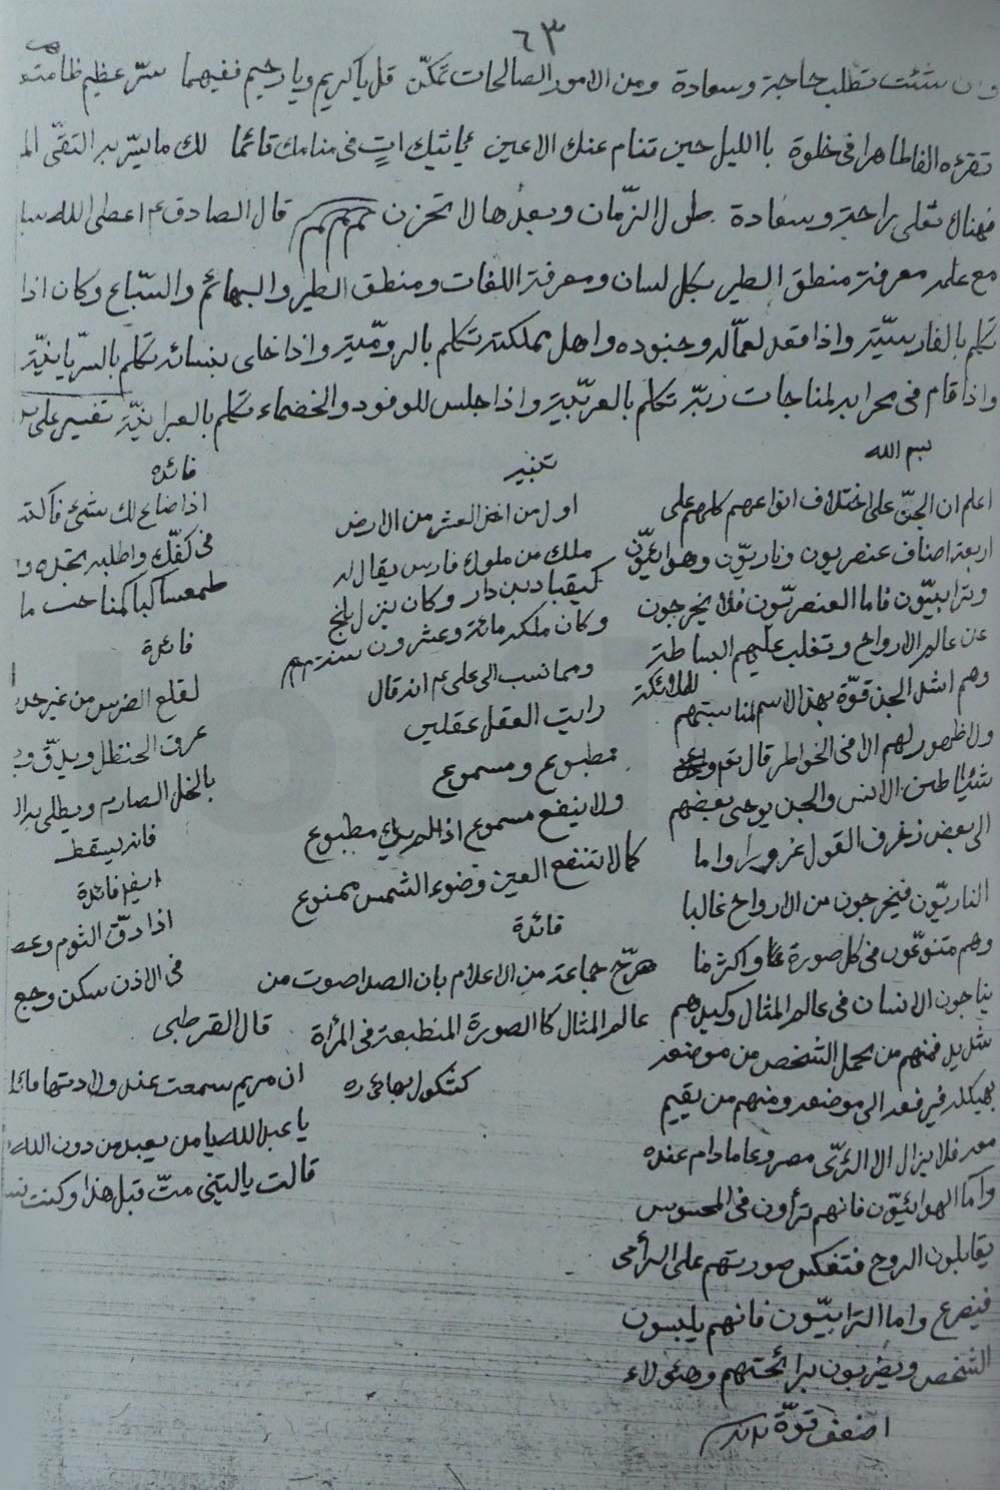 ٦٣
وان شئت تطلب حاجة وسعادة ومن الامور الصالحات تمكّن قل يا كريم ويا رحيم ففيهما سرّ عظيم
تقرءه الفا طاهرا في خلوة باالليل حين تنام عنك الاعين يأتيك اتٍ في منامك قائما لك ما يسّر به التقّي
فهناك تعلى راحة وسعادة طول الزّمان وبعدها لا تحزن قال الصادق ع اعطى الله
مع علمه معرفة منطق الطير بكل لسان ومعرفة اللغات ومنطق الطير والبهائم والسّباع وكان اذا
تكلم بالفارسيّة واذا قعد لعمّاله وجنوده واهل مملكته تكلم بالروميّة واذا خلى بنسائه تكلم بالسّريانيّة
واذا قام في محرابه لمناجات ربّه تكلم بالعربّية واذا جلس للوفود والخصماء تكلم بالعبرانيّة تفسير على
بسم الله
اعلم ان الجنّ على اختلاف انواعهم كلهم على
اربعة اصناف عنصريون وناريّون وهوائيّون
وترابيّون فاما العنصريّون فلا يخرجون
عن عالم الارواح وتغلب عليهم البساطة
وهم اشد الجن قوّة بهذا الاسم لمناسبتهم للملائكة
ولا ظهور لهم الا في الخواطر قال تع
شياطين الانس والجن يوحى بعضهم
الى بعض زخرف القول غرورا واما
الناريّون فيخرجون من الارواح غالبا
وهم متنوّعون في كل صورة واكثر ما
يناجون الانسان في عالم المثال وكيدهم
شديد فمنهم من يحمل الشخص من موضعه
بهيكله فيرفعه الى موضعه ومنهم من يقيم
معه فلا يزال الرّئى مصروعا مادام عنده
واما الهوائيّون فانهم ترأون في المحسوس
يقابلون الروح فتعكس صورتهم على الرأمى
فيصرع واما الترابيّون فانهم يلبسون
الشخص ويضربون برائحتهم وهؤلاء
اضعف قوّة
تنبيه
اول من اخذ العشر من الارض
ملك من ملوك فارس يقال له
كيقباد بن دار وكان ينزل بلخ
وكان ملكه مائة وعشرون سنة
ومما نسب الى على ع انه قال
رايت العقل عقلين
فمطبوع ومسموع
ولا ينفع مسموع اذا لم يك مطبوع
كما لا تنفع العين وضوء الشمس ممنوع
فائدة
صرّح جماعة من الاعلام بان الصدا صوت من
عالم المثال كا الصورة المنطبعة في المرأة
كشكول بهائى ره
فائده
اذا ضاع لك شئ فاكتب
في كفّك واطلبه تجده
فائدة
لقلع الضرس من غير
عرق الحنظل ويدقّ
بالخل الصارم ويطلى به
فانه يسقط
ايضا فائدة
اذا دقّ الثوم
في الاذن سكن وجع
قال القرطبى
ان مريم سمعت عند ولادتها
يا عبد الله يا من يعبد من دون الله
قالت يا ليتني متّ قبل هذا وكنت